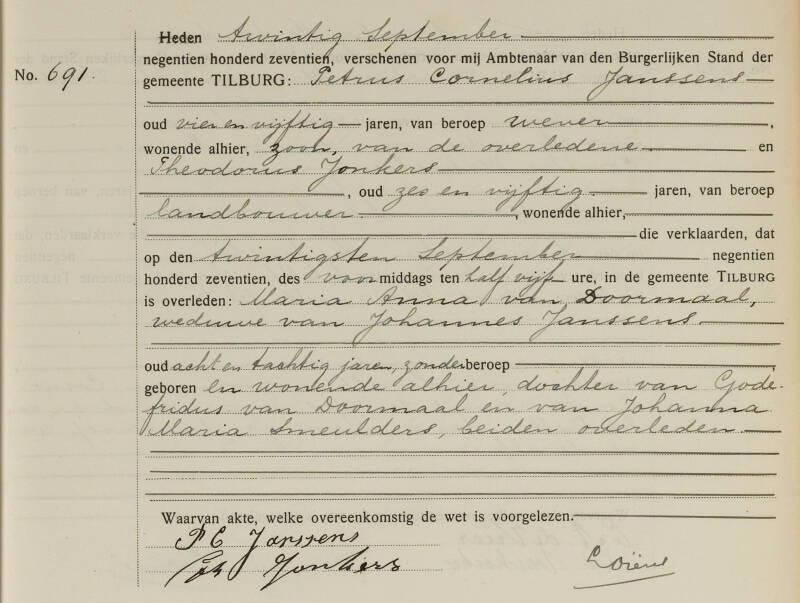 Heden twintig September
negentien honderd zeventien, verschenen voor mij Ambtenaar van den Burgerlijken Stand der
No. 691.
gemeente TILBURG: Petrus Cornelius Janssens
oud vier en vijftig jaren, van beroep wever,
wonende alhier, zoon, van de overledene en
Theodorus Jonkers
, oud zes en vijftig jaren, van beroep
landbouwer, wonende alhier,
die verklaarden, dat
op den twintigsten September negentien
honderd zeventien, des voormiddags ten half vijf ure, in de gemeente TILBURG
is overleden: Maria Anna van Doormaal,
weduwe van Johannes Janssens
oud acht en tachtig jaren, zonder beroep,
geboren en wonende alhier, dochter van Gode-
fridus van Doormaal en van Johanna
Maria Smeulders, beiden overleden.
Waarvan akte, welke overeenkomstig de wet is voorgelezen.
P C Janssens
Jonkers